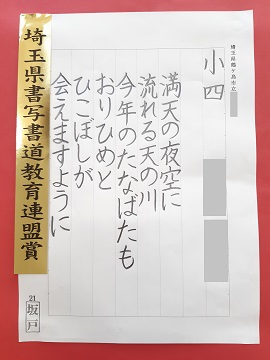 埼玉県鶴ヶ島市立
小四
満天の夜空に
流れる天の川
今年のたなばたも
おりひめと
ひこぼしが
会えますように
埼玉県書写書道教育連盟賞
21
坂戸